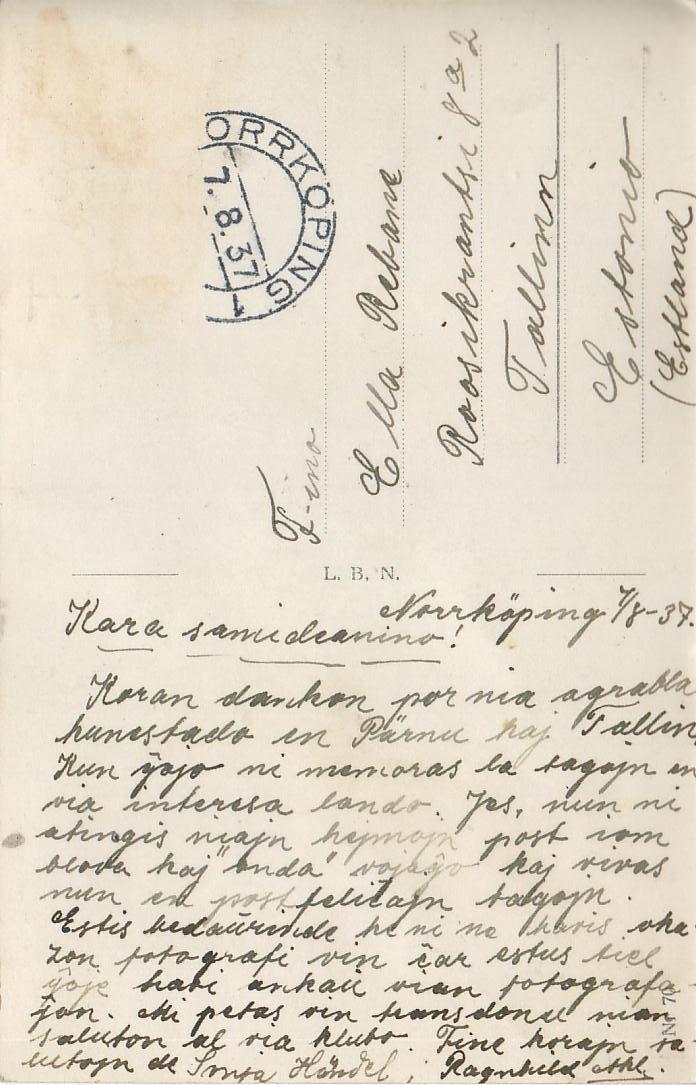 NORRKÖPING 1
7.8.37
F-ino
Ella Rebane
Roosikrantsi 8 a 2
Tallinn
Estonio
(Estland)
L. B. N.
Norrköping 7/8-37.
Kara samideanino!
Koran dankon por nia agrabla
kunestado en Pärnu kaj Tallin
Kun ĝojo ni memoras la tagojn en
via interesa lando. Jes, nun ni
atingis niajn hejmojn post iom
blova kaj "onda" vojaĝo kaj vivas
nun en post feliĉajn tagojn.
Estis bedaŭrinde ke ni ne havis oka-
zon fotografi vin ĉar estus tiel
ĝoje havi ankaŭ vian fotografa-
ĵon. Mi petas vin transdoni nian
saluton al via klubo. Fine korajn sa-
lutojn de Händel, Ragnhild